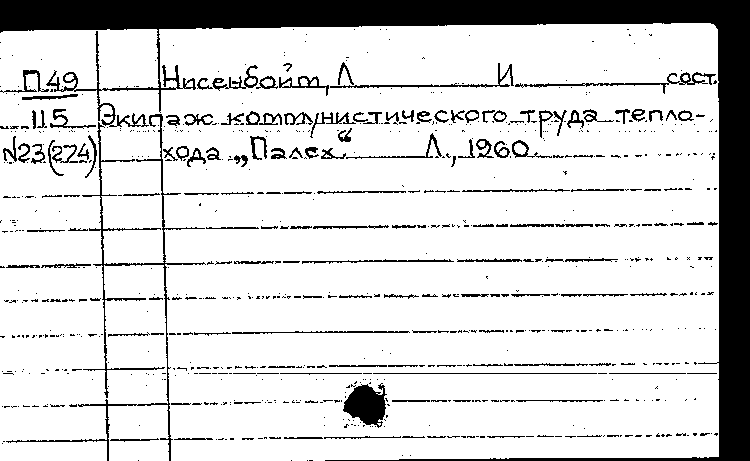 П49 Нисенбойм, Л И , сост.
115 Экипаж коммунистического труда тепло-
N23(274) хода „Палех“. Л., 1960.